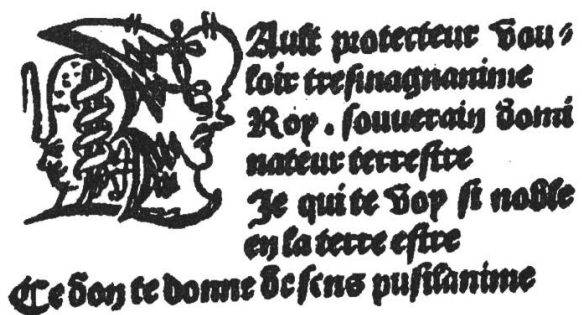 HAult protecteur vou⸗
loir tresmagnanime
Roy. souuerain domi
nateur terrestre
Je qui te voy si noble
en la terre estre
Ce don te donne de sens pusilanime